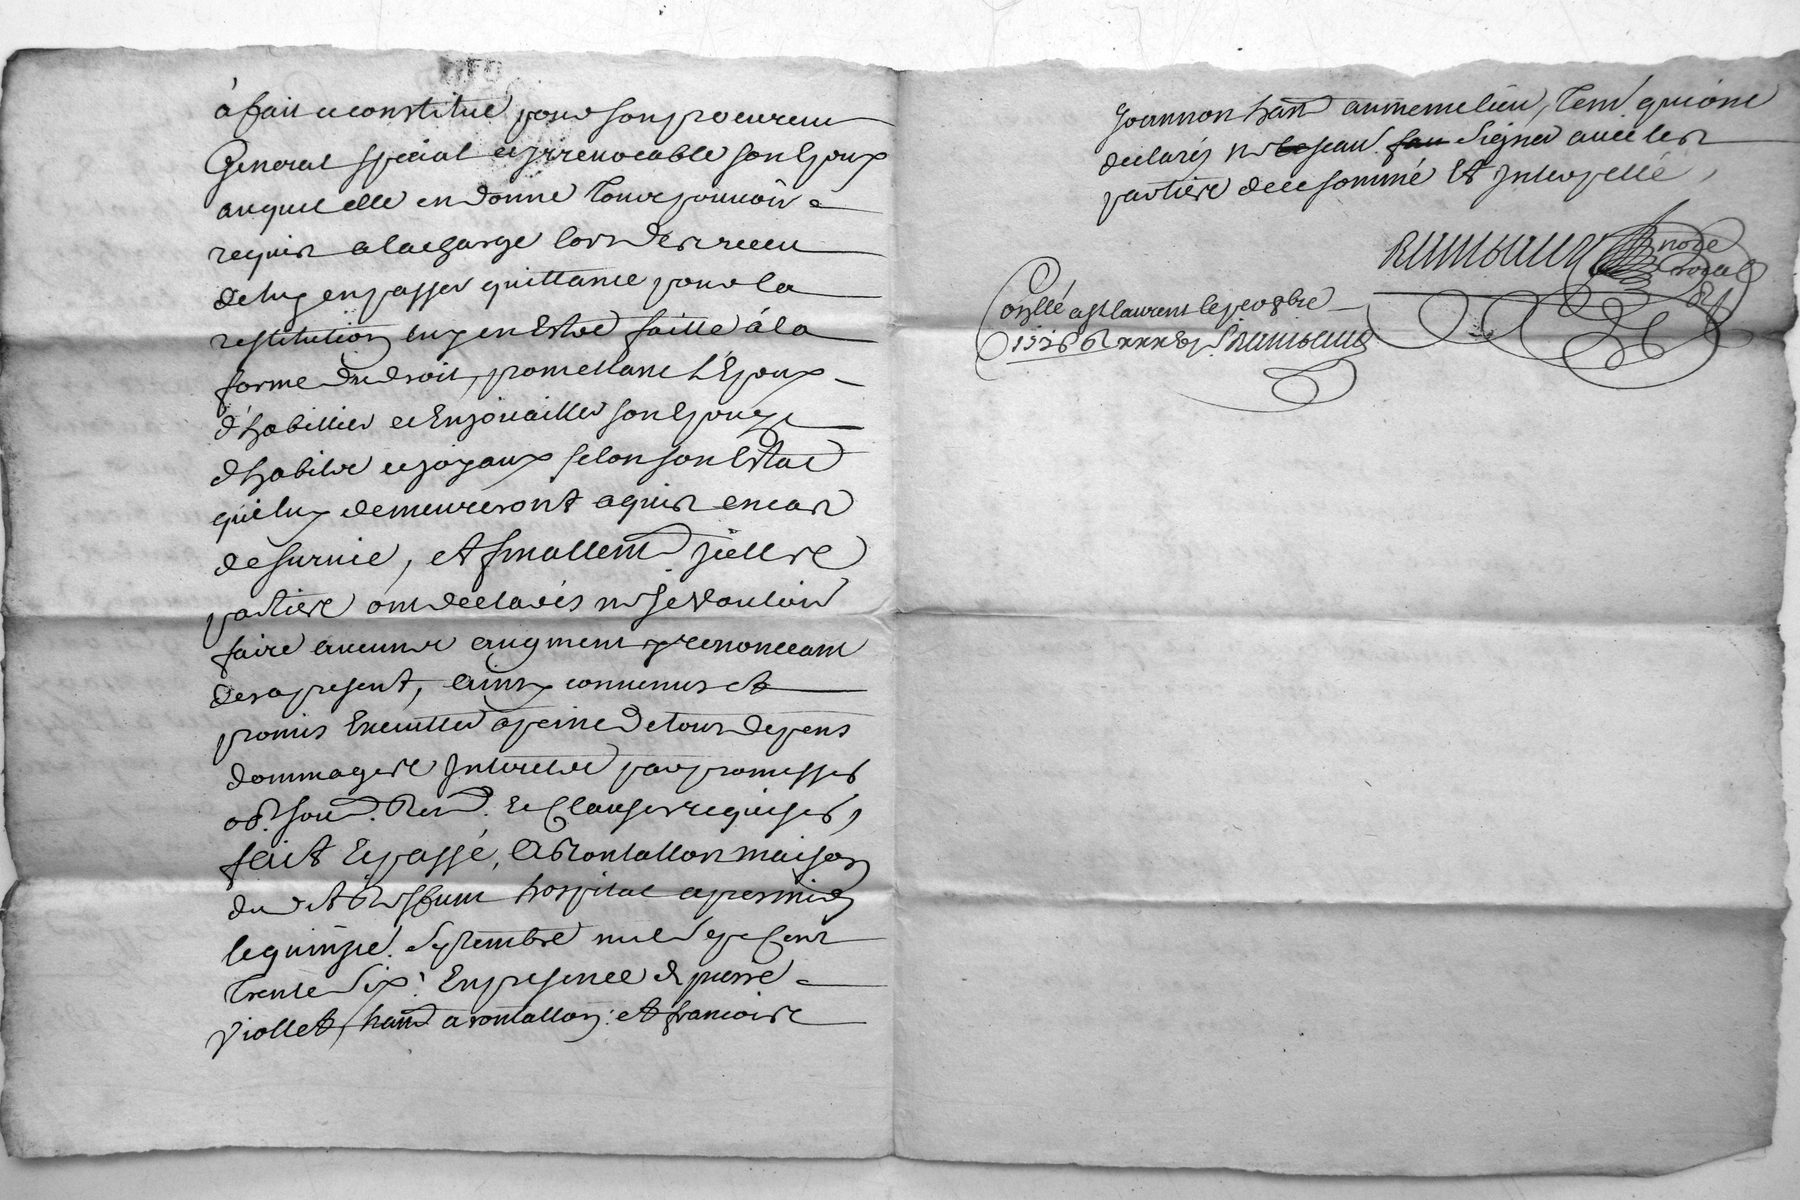 à fait et constitué pour son procureur
General special et irrevocable son Epoux
auquel elle en donne tous pouvoir
requis a la charge lors des receu
de luy en passer quittance pour la
restitution luy en Estre faitte à la
forme du droit, promettant L'Epoux
d'habillier et Enjoüailler son Epouze
d'habits et joyaux selon son Estat
qui luy demeureront aquis en cas
de survie, et finallem.t jcelles
parties ont declarés ne se Vouloir
faire aucuns augment y renonceant
des a present, ainsy convenus et
promis Executter a peine de tous depens
dommages Interets par promesses
ob. soum. Ren. et Clauses requises,
fait Et passé, a Rontallon maison
du dit hospital apresmidy
le quinzie. Septembre mil Sept Cent
Trente Six: En presence de pierre
Viollet, hant a rontallon: et francois
Joannon hant au meme lieu, Tem. qui ont
declarés ne Scavoir signer avec les
parties de ce sommé Et Interpellé,
nore
royal
Conllé a st laurent le 8bre
1736